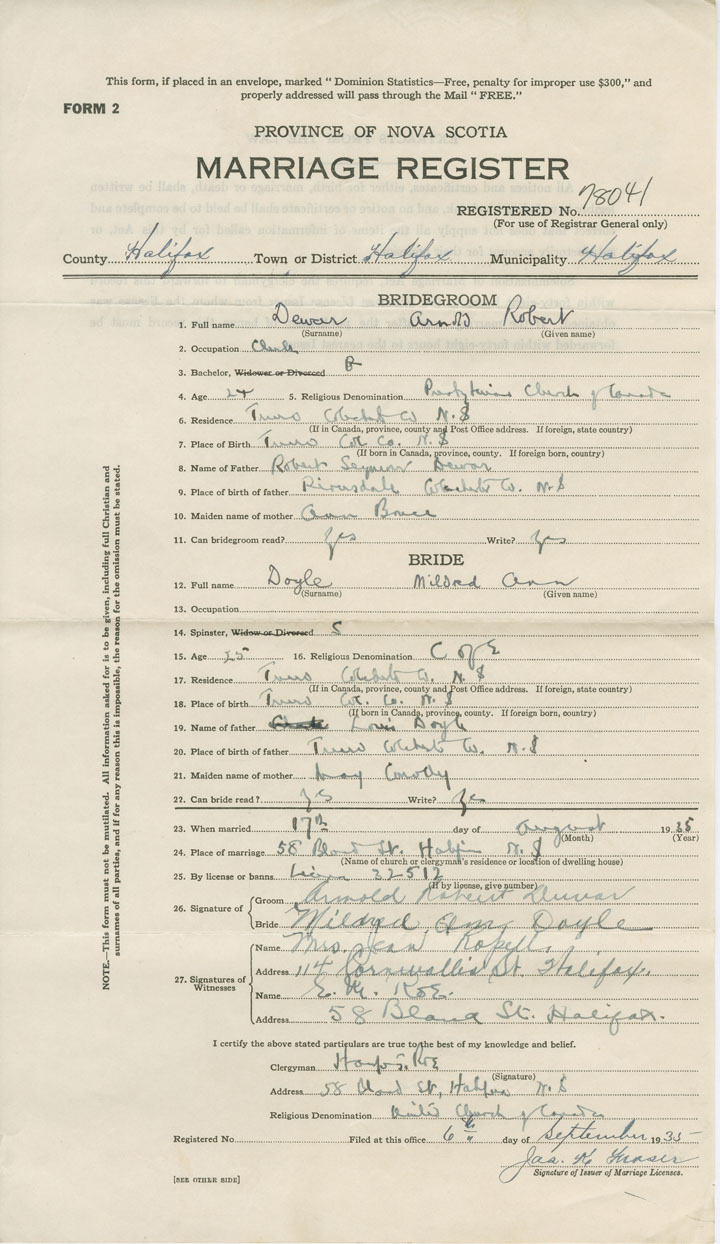 This form, if placed in an envelope, marked “ Dominion Statistics—Free, penalty for improper use $300,” and
properly addressed will pass through the Mail “ FREE.”
FORM 2
PROVINCE OF NOVA SCOTIA
MARRIAGE REGISTER
REGISTERED No. 78041
(For use of Registrar General only)
County Halifax Town or District Halifax Municipality Halifax
BRIDEGROOM
1. Full name Dewar Arnold Robert
(Surname) (Given name)
2. Occupation Clerk
3. Bachelor, Widower or Divorced B
4. Age 24 5. Religious Denomination Presbyterian Church of Canada
6. Residence Truro Colchester Co. N.S
(If in Canada, province, county and Post Office address. If foreign, state country)
7. Place of Birth Truro Col. Co. N.S
(If born in Canada, province, county. If foreign born, country)
8. Name of Father Robert Seymour Dewar
9. Place of birth of father Riversdale Colchester Co. N.S
10. Maiden name of mother Ann Bruce
11. Can bridegroom read? Yes Write? Yes
BRIDE
12. Full name Doyle Mildred Ann
(Surname) (Given name)
13. Occupation
14. Spinster, Widow or Divorced S
15. Age 25 16. Religious Denomination C of E
17. Residence Truro Colchester Co. N.S
(If in Canada, province, county and Post Office address. If foreign, state country)
18. Place of birth Truro Col. Co. N.S
(If born in Canada, province, county. If foreign born, country)
19. Name of father Louis Doyle
20. Place of birth of father Truro Colchester Co. N.S
21. Maiden name of mother May
22. Can bride read? Yes Write? Yes
23. When married 17th day of August 1935
(Month) (Year)
24. Place of marriage 58 Bland St. Halifax N.S
(Name of church or clergyman's residence or location of dwelling house)
25. By license or banns License 32512
(If by license, give number)
26. Signature of Groom Arnold Robert Dewar
Bride Mildred Ann Doyle
27. Signatures of Witnesses Name Mrs. Jean
Address 114 Cornwallis St. Halifax.
Name E. M. Roe.
Address 58 Bland St. Halifax.
I certify the above stated particulars are true to the best of my knowledge and belief.
Clergyman Roe
(Signature)
Address 58 Bland St, Halifax N.S
Religious Denomination United Church of Canada
Registered No. Filed at this office 6th day of September 1935
Jas. K Fraser
Signature of Issuer of Marriage Licenses.
[SEE OTHER SIDE]
NOTE.—This form must not be mutilated. All information asked for is to be given, including full Christian and
surnames of all parties, and if for any reason this is impossible, the reason for the omission must be stated.